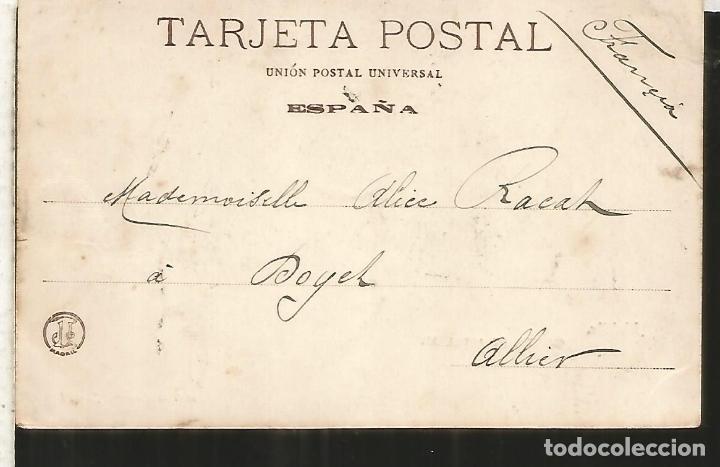 TARJETA POSTAL
UNIÓN POSTAL UNIVERSAL
ESPAÑA
Francia
Mademoiselle Alice Racat
à Doyet
Allier
MADRID
todocoleccion.net